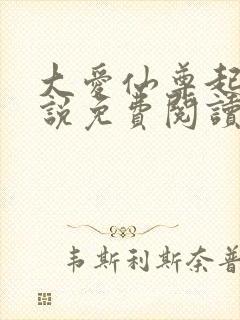 大愛仙尊起
說免費閱讀
韦斯利斯奈普